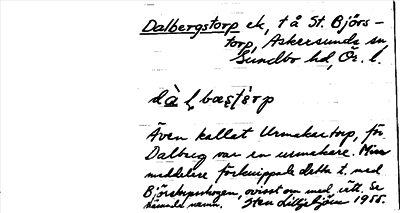 Dalbergstorp ek, t å St. Björs-
torp, Askersunds sn,
Sundbo hd, Ör. l.
Även kallat Urmakartorp, för
Dalberg var en urmakare. Min
meddelare förknippade detta t. med
Björstorpsskogen, ovisst om med rätt. Se
nämnda namn. Sten Liljebjörn 1955.